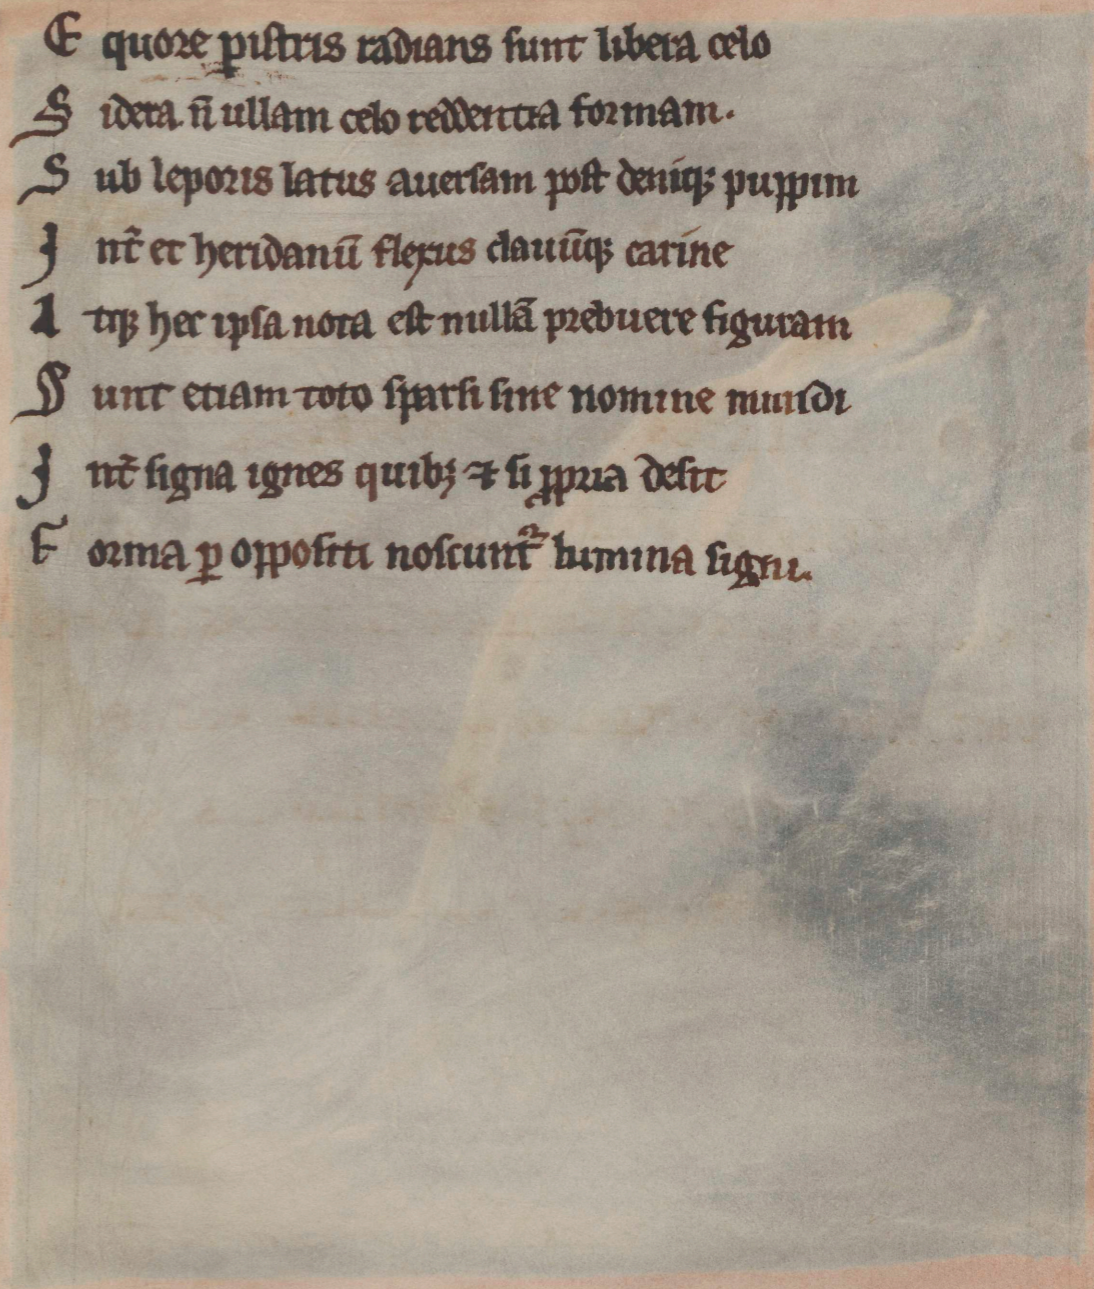 E quore pistris radians sunt libera celo
S idera n̄ ullam celo reddentia formam.
S ub leporis latus auersam post deniq; puppim
J nt̄ et heridanū flexus clauūq; carine
A tq; hec ipsa nota est nullā prebuere figuram
S unt etiam toto sparsi sine nomine mundi
J nt̄ signa ignes quib; ⁊ si ꝓpria desit
F orma ꝑ oppositi noscunt᷑ lumina signi.